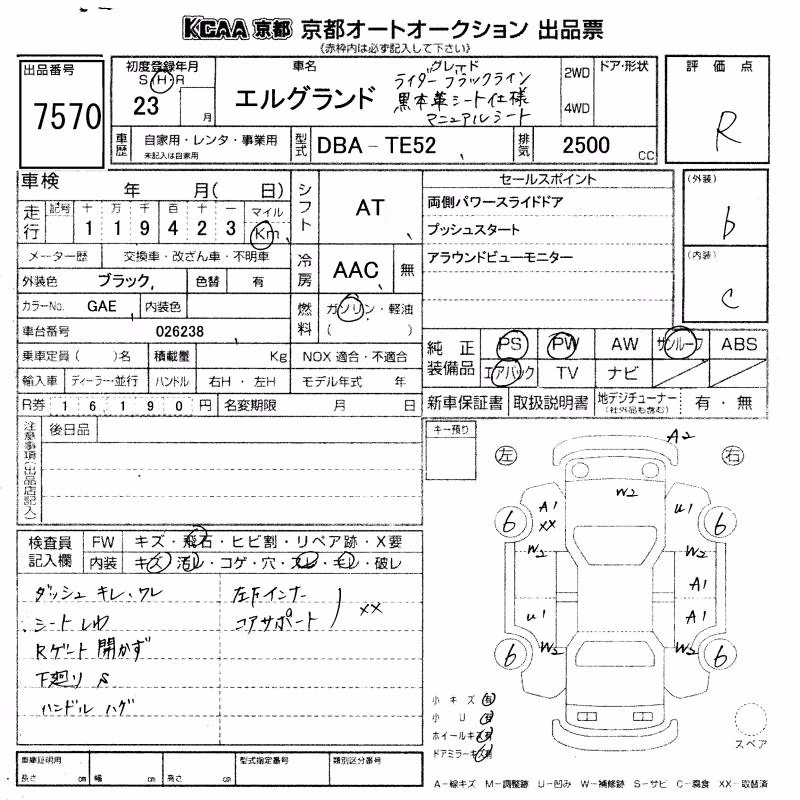 KCAA 京都 京都オートオークション 出品票
《赤枠内は必ず記入して下さい》
出品番号
7570
初度登録年月
S H R
23 月
車名
エルグランド
グレード
ライダー ブラックライン
黒本革シート仕様
マニュアルシート
2WD
4WD
ドア・形状
評価点
R
車歴
自家用・レンタ・事業用
未記入は自家用
型式
DBA-TE52
排気
2500 CC
車検 年 月( 日)
走行
記号 十 万 千 百 十 一 マイル
1 1 9 4 2 3 Km
メーター歴 交換車・改ざん車・不明車
外装色 ブラック 色替 有
カラーNo. GAE 内装色
車台番号 026238
乗車定員( )名 積載量 Kg
輸入車 ディーラー・並行 ハンドル 右H・左H
R券 16190円 名変期限 月 日
シフト AT
冷房 AAC 無
燃料 ガソリン・軽油
( )
NOX 適合・不適合
モデル年式 年
セールスポイント
両側パワースライドドア
プッシュスタート
アラウンドビューモニター
(外装)
b
(内装)
C
純正装備品
PS PW AW サンルーフ ABS
エアバック TV ナビ
新車保証書 取扱説明書 地デジチューナー 有・無
(社外品も含む)
注意事項(出品店記入)
後日品
キー預り
検査員記入欄
FW キズ・飛石・ヒビ割・リペア跡・X要
内装 キズ・汚レ・コゲ・穴・スレ・キレ・破レ
ダッシュ キレ、ワレ
シート しわ
Rゲート 開かず
下廻り S
ハンドル ハゲ
左Fインナー
コアサポート
XX
左
右
A2
W2
A1
XX
U1
6
6
W2
W2
A1
A1
U1
W2
W2
6
6
小キズ 有
小U 有
ホイールキズ 有
ドアミラーキズ 有
スペア
車庫証明用
長さ cm 幅 cm 高さ cm
型式指定番号
類別区分番号
A―線キズ M―調整跡 U―凹み W―補修跡 S―サビ C―腐食 XX―取替済